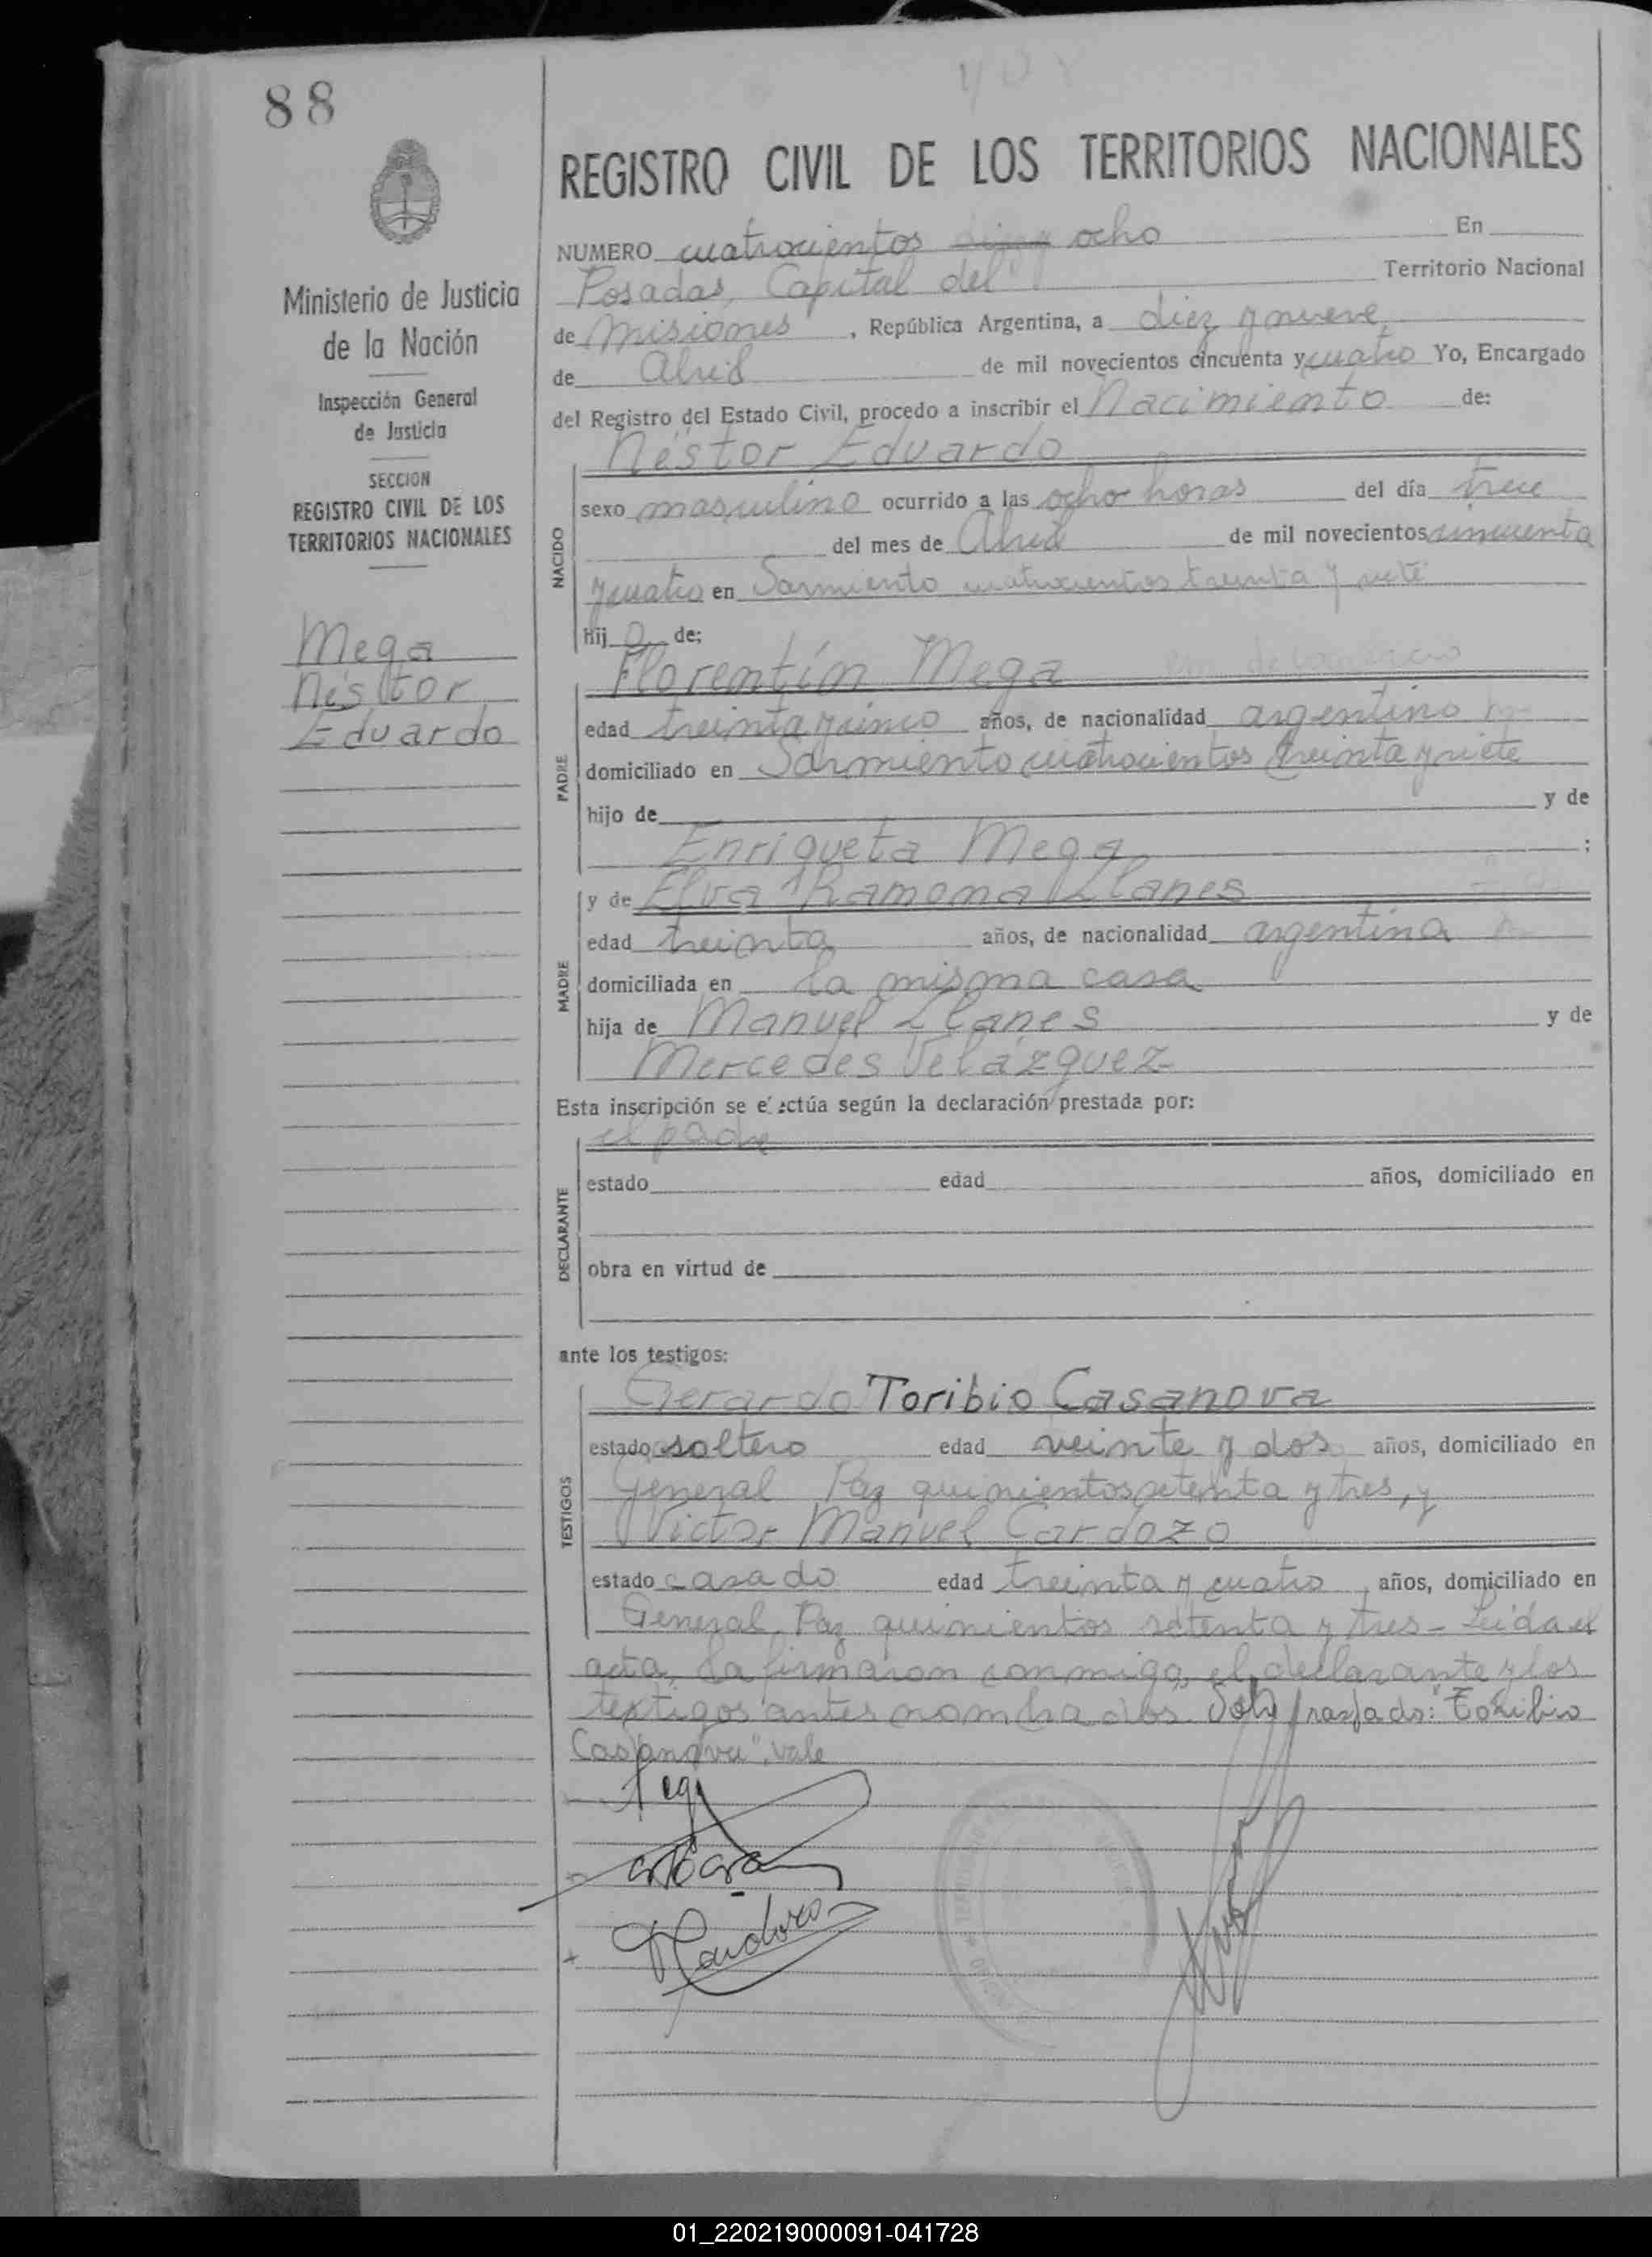 88
408
REGISTRO CIVIL DE LOS TERRITORIOS NACIONALES
Ministerio de Justicia
de la Nación
Inspección General
de Justicia
SECCION
REGISTRO CIVIL DE LOS
TERRITORIOS NACIONALES
Mega
Néstor
Eduardo
NUMERO cuatrocientos ocho En
Posadas, Capital del Territorio Nacional
de Misiones, República Argentina, a diez y nueve
de Abril de mil novecientos cincuenta y cuatro Yo, Encargado
del Registro del Estado Civil, procedo a inscribir el Nacimiento de:
Néstor Eduardo
NACIDO
sexo masculino ocurrido a las ocho horas del día trece
del mes de Abril de mil novecientos cincuenta
y cuatro en Sarmiento cuatrocientos treinta y siete
hijo de:
Florentín Mega
PADRE
edad treinta y cinco años, de nacionalidad argentino
domiciliado en Sarmiento cuatrocientos treinta y siete
hijo de y de
Enriqueta Mega ;
y de Elva Ramona Llanes
MADRE
edad treinta años, de nacionalidad argentina
domiciliada en la misma casa
hija de Manuel Llanes y de
Mercedes Velázquez
Esta inscripción se efectúa según la declaración prestada por:
el padre
DECLARANTE
estado edad años, domiciliado en
obra en virtud de
ante los testigos:
Gerardo Toribio Casanova
TESTIGOS
estado soltero edad veinte y dos años, domiciliado en
General Paz quinientos setenta y tres, y
Victor Manuel Cardozo
estado casado edad treinta y cuatro, años, domiciliado en
General Paz quinientos setenta y tres - Leída el
acta, la firmaron conmigo, el declarante y los
testigos antes nombrados. Sobre raspado: "Toribio
Casanova". Vale
Cardozo
01_220219000091-041728